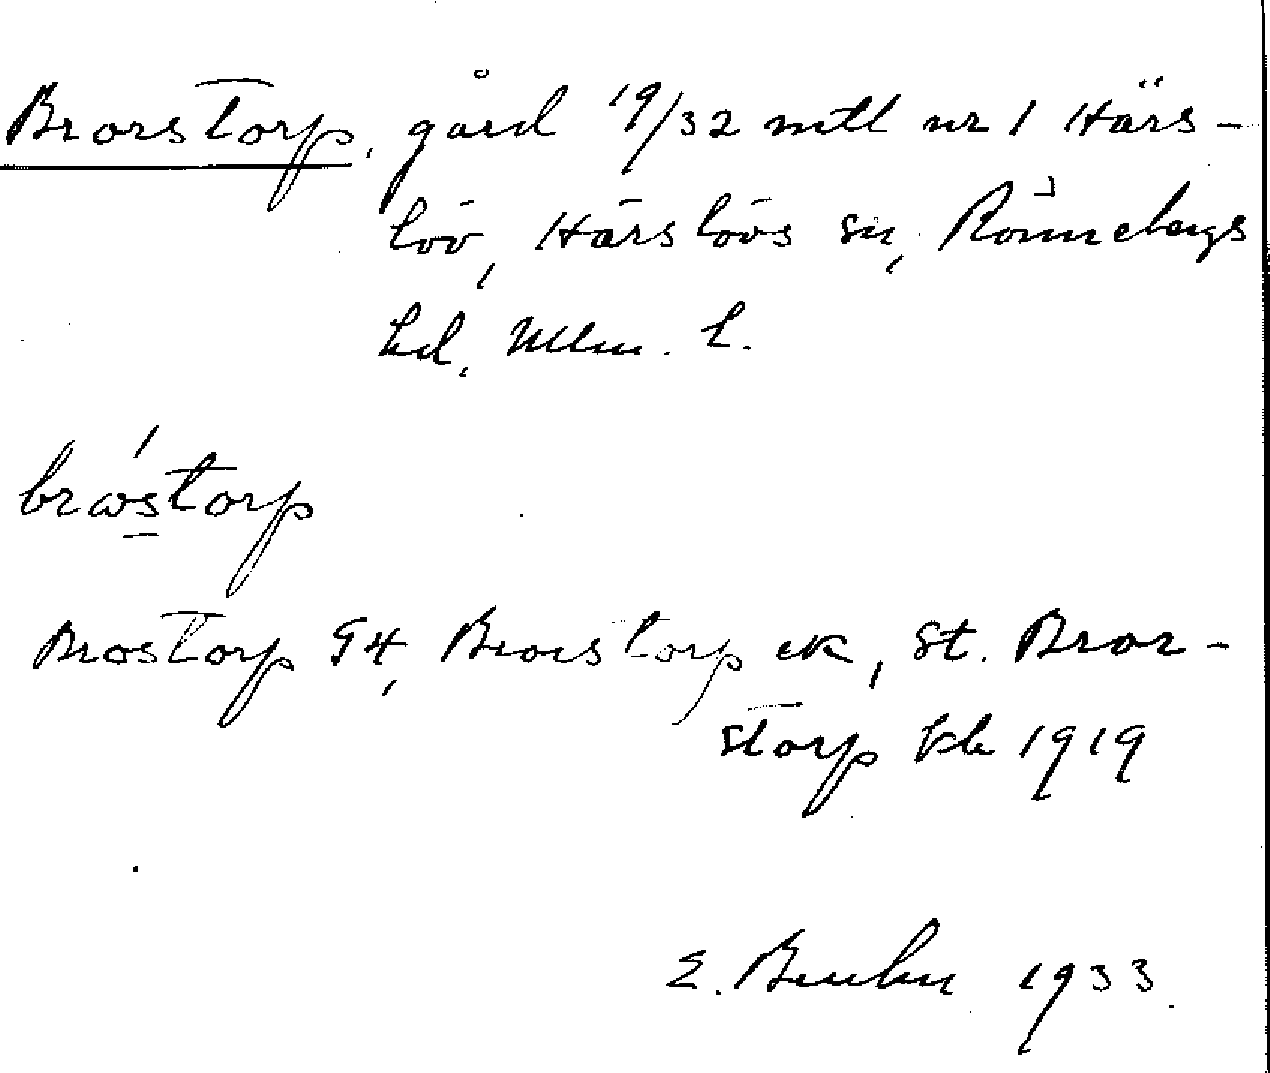 Brorstorp, gård 19/32 mtl nr 1 Härs-
löv, Härslövs sn, Rönnebergs
hd, Mlm. l.
bra̍storp
Brostorp GK, Brorstorp ek, St. Bror-
storp kk 1919
E. 1933